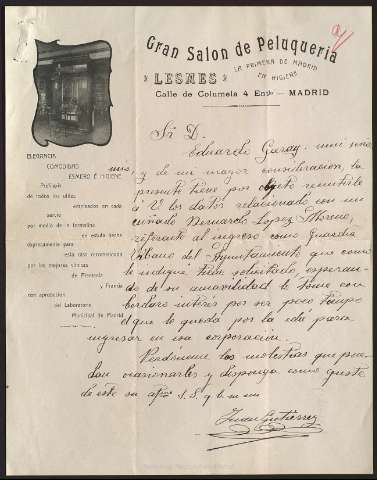 Gran Salon de Peluqueria
LESMES
LA PRIMERA DE MADRID
EN HIGIENE
Calle de Columela 4 Entlo — MADRID
ELEGANCIA
COMODIDAD
ESMERO É HIGIENE
de todos los útiles
empleados en cada
servicio
por medio de la formalina
en estufa hecha
para
esta casa
por las mejores
de Alemania
y Francia
con aprobación
del Laboratorio
Municipal de Madrid
Sr D.
Eduardo Garay muy mio
y de mi mayor consideración, la
presente tiene por objeto remitirle
a V. los datos relacionado con mi
cuñado Bernardo Lopez Moreno,
referente al ingreso como Guardia
Urbano del Ayuntamiento que como
le indiqué tiene solicitado, esperan-
do de su amabilidad le tome con
interés por ser poco tiempo
el que le queda por la edá para
ingresar en esa corporación.
Perdóneme las molestias que pue-
dan ocasionarles y disponga como guste
de este su afmo S. S. q b. su m
Juan Gutiérrez